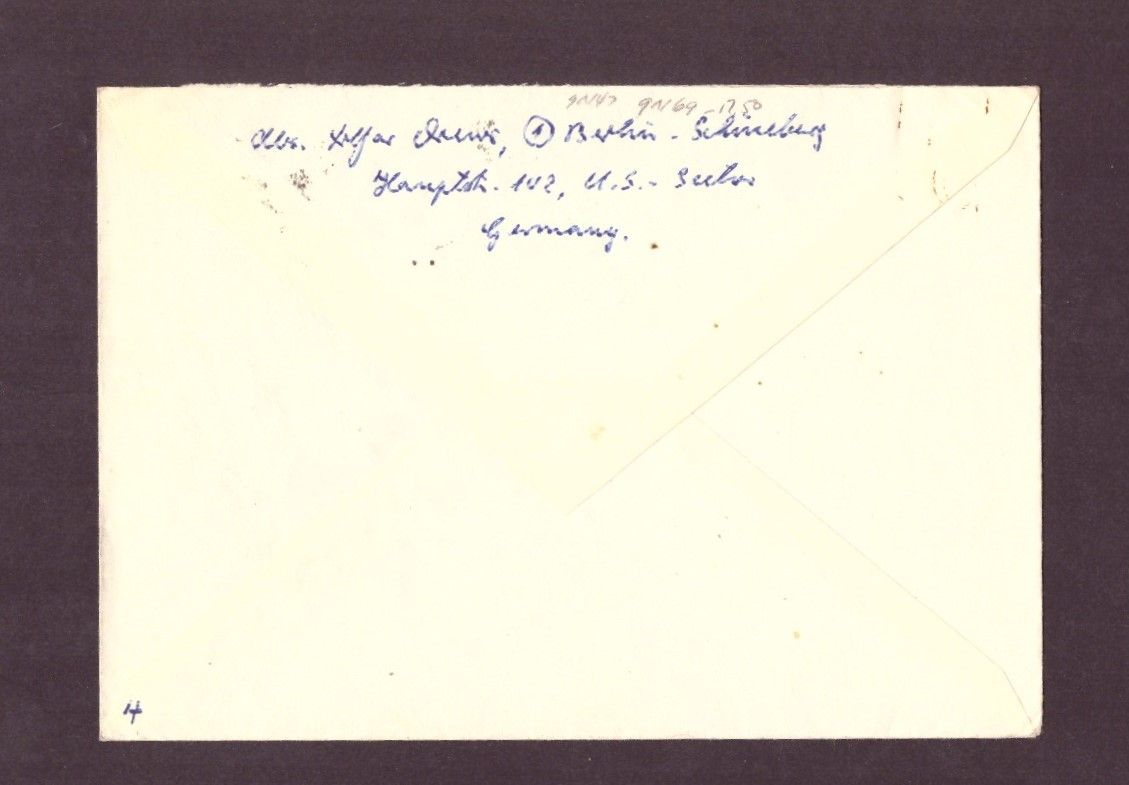 9N43 9N69 - 17.50
Abs. Drews, ① Berlin - Schöneberg
Hauptstr. 142, U.S. - Sector
Germany.
4